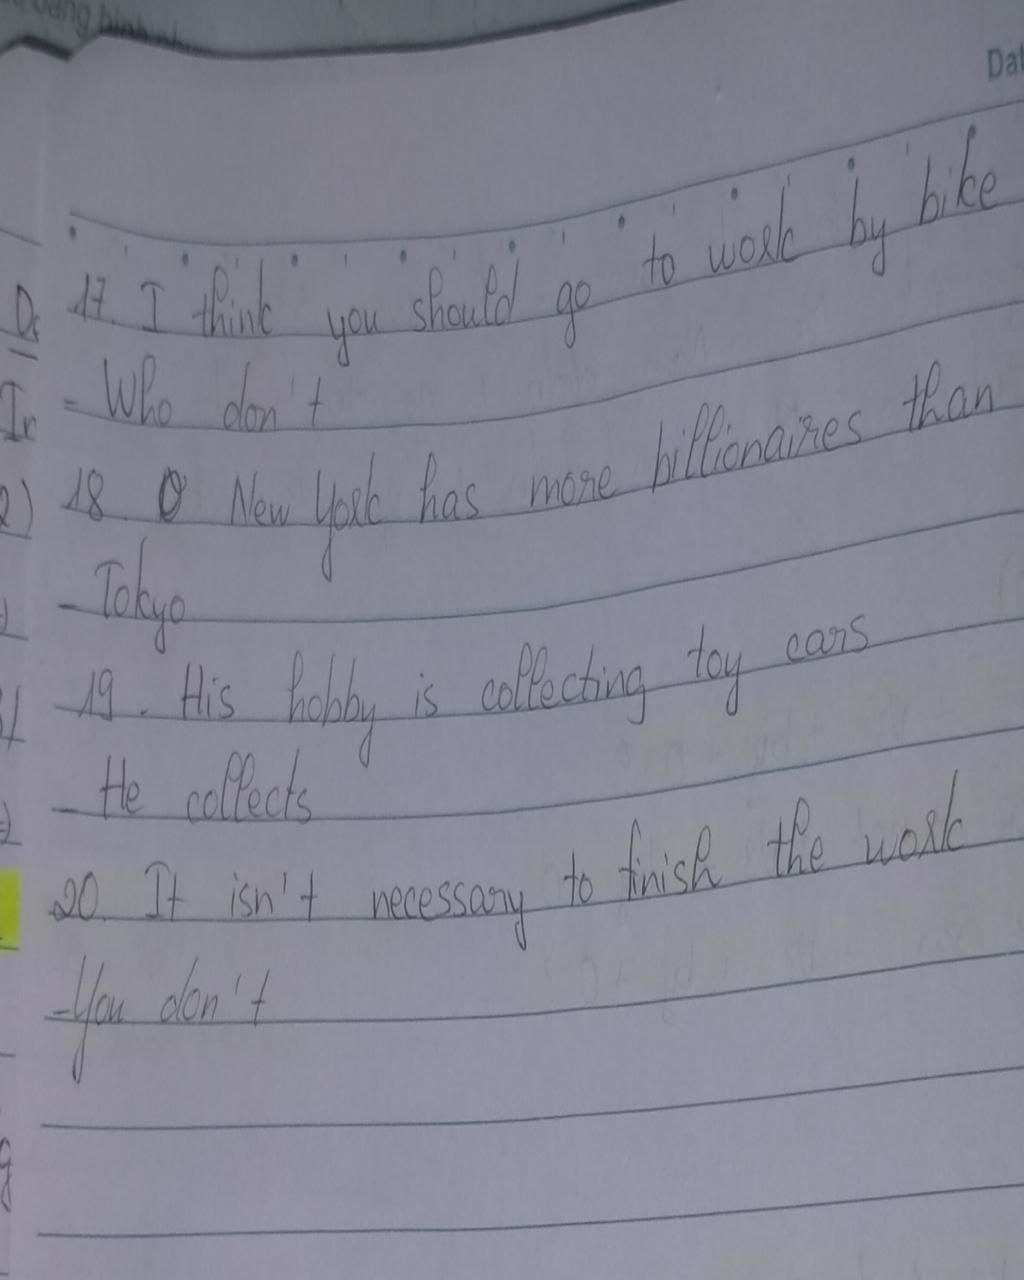 Dat
17. I think you should go to work by bike
- Who don't
18. New York has more billionaires than
- Tokyo
19. His hobby is collecting toy cars
- He collects
20. It isn't necessary to finish the work
- You don't